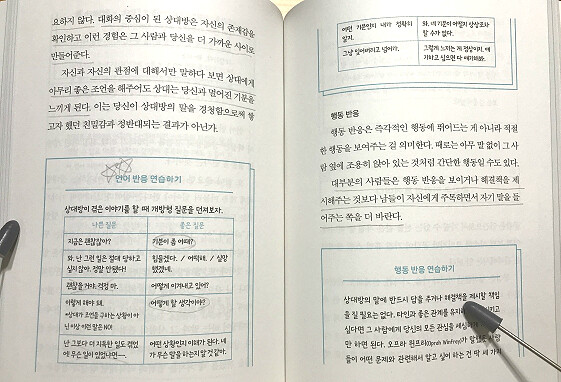 요하지 않다. 대화의 중심이 된 상대방은 자신의 존재감을
확인하고 이런 경험은 그 사람과 당신을 더 가까운 사이로
만들어준다.
자신과 자신의 관점에 대해서만 말하다 보면 상대에게
아무리 좋은 조언을 해주어도 상대는 당신과 멀어진 기분을
느끼게 된다. 이는 당신이 상대방의 말을 경청함으로써 쌓
고자 했던 친밀감과 정반대되는 결과가 아닌가.
언어 반응 연습하기
상대방이 겪은 이야기를 할 때 개방형 질문을 던져보자.
나쁜 질문
좋은 질문
지금은 괜찮잖아?
기분이 좀 어때?
와, 난 그런 일은 절대 당하고
싶지 않아. 정말 안됐다!
힘들겠다. / 어떡해. / 실망
했겠네.
괜찮을 거야. 걱정 마.
어떻게 이겨내고 있어?
이렇게 해야 돼.
*상대가 조언을 구하는 상황이 아
닌 이상 이런 말은 NO!
어떻게 할 생각이야?
난 그보다 더 지독한 일도 겪었
어. 무슨 일이 있었냐면—.
어떤 상황인지 이해가 된다. 네
가 무슨 말을 하는지 알 것 같아.
어떤 기분인지 내가 정확히
알지.
와, 네 기분이 어떨지 상상조차
할 수가 없다.
그냥 잊어버리고 넘어가.
그렇게 느끼는 게 정상이지. 얘
기하고 싶으면 다 얘기해봐.
행동 반응
행동 반응은 즉각적인 행동에 뛰어드는 게 아니라 적절
한 행동을 보여주는 걸 의미한다. 때로는 아무 말 없이 그 사
람 옆에 조용히 앉아 있는 것처럼 간단한 행동일 수도 있다.
대부분의 사람들은 행동 반응을 보이거나 해결책을 제
시해주는 것보다 남들이 자신에게 주목하면서 자기 말을 들
어주는 쪽을 더 바란다.
행동 반응 연습하기
상대방의 말에 반드시 답을 주거나 해결책을 제시할 책임
을 질 필요는 없다. 타인과 좋은 관계를 유지
싶다면 그 사람에게 당신의 모든 관심을
만 하면 된다. 오프라 윈프리(Oprah Winfrey)가
들이 어떤 문제와 관련해서 알고 싶어 하는 건 딱 세 가지